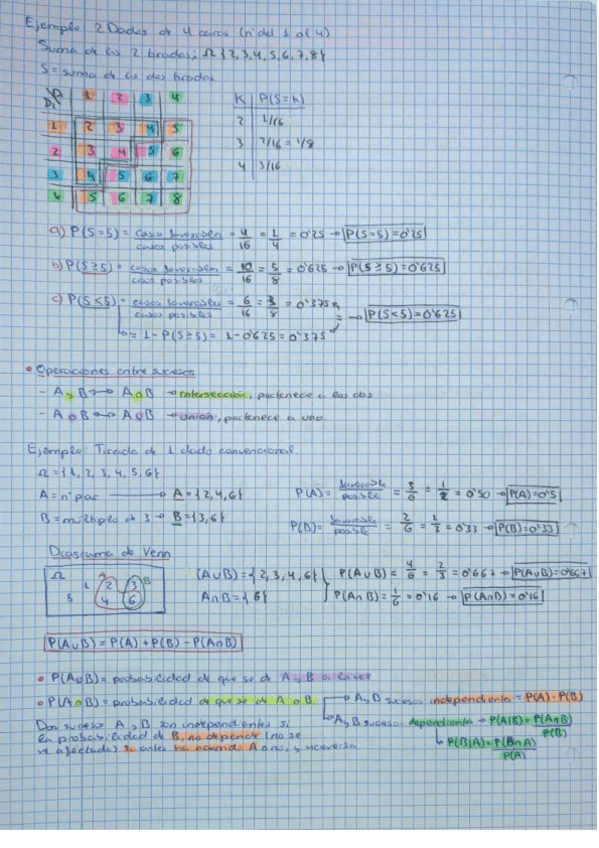 Ejemplo 2 Dados de 4 caras (nº del 1 al 4)
Suma de las 2 tiradas; Ω {2,3,4,5,6,7,8}
S = suma de las dos tiradas
D₁ 1 2 3 4
1 2 3 4 5
2 3 4 5 6
3 4 5 6 7
4 5 6 7 8
K P(S=k)
2 1/16
3 2/16 = 1/8
4 3/16
a) P(S=5) = casos favorables / casos posibles = 4/16 = 1/4 = 0'25 → P(S=5)=0'25
b) P(S≥5) = casos favorables / casos posibles = 10/16 = 5/8 = 0'625 → P(S≥5)=0'625
c) P(S<5) = casos favorables / casos posibles = 6/16 = 3/8 = 0'375 = → P(S<5)=0'625
= 1-P(S≥5) = 1-0'625 = 0'375
• Operaciones entre sucesos
- A y B ↔ A∩B → intersección, pertenece a los dos
- A o B ↔ A∪B → unión, pertenece a uno
Ejemplo: Tirada de 1 dado convencional
Ω = {1, 2, 3, 4, 5, 6}
A = nº par → A = {2,4,6} P(A) = favorable / posible = 3/6 = 1/2 = 0'50 → P(A)=0'5
B = múltiplo de 3 → B = {3,6} P(B) = favorable / posible = 2/6 = 1/3 = 0'33 → P(B)=0'33
Diagrama de Venn
Ω A B 1 5 2 4 3 6
(A∪B) = {2,3,4,6} P(A∪B) = 4/6 = 2/3 = 0'667 → P(A∪B)=0'667
A∩B = {6} P(A∩B) = 1/6 = 0'16 → P(A∩B)=0'16
P(A∪B) = P(A) + P(B) - P(A∩B)
• P(A∪B) = probabilidad de que se de A y B a la vez
• P(A∩B) = probabilidad de que se de A o B → A, B sucesos independiente = P(A)·P(B)
→ A y B sucesos dependiente → P(A|B) = P(A∩B) / P(B)
→ P(B|A) = P(B∩A) / P(A)
Dos sucesos A y B son independientes si
la probabilidad de B, no depende (no se
ve afectada) si antes ha ocurrido A o no, y viceversa